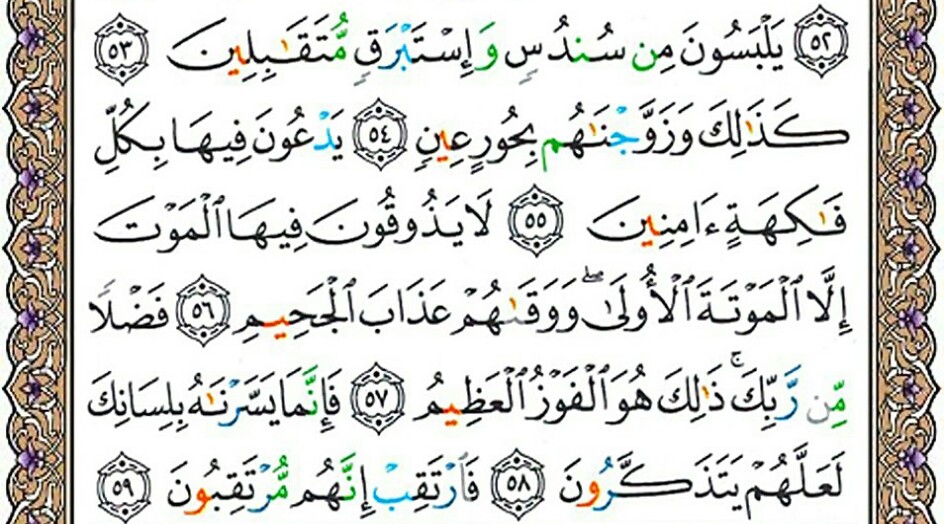 ٥٢ يَلْبَسُونَ مِن سُندُسٍ وَإِسْتَبْرَقٍ مُّتَقَٰبِلِينَ ٥٣
كَذَٰلِكَ وَزَوَّجْنَٰهُم بِحُورٍ عِينٍ ٥٤ يَدْعُونَ فِيهَا بِكُلِّ
فَٰكِهَةٍ ءَامِنِينَ ٥٥ لَا يَذُوقُونَ فِيهَا الْمَوْتَ
إِلَّا الْمَوْتَةَ الْأُولَىٰ ۖ وَوَقَىٰهُمْ عَذَابَ الْجَحِيمِ ٥٦ فَضْلًا
مِّن رَّبِّكَ ۚ ذَٰلِكَ هُوَ الْفَوْزُ الْعَظِيمُ ٥٧ فَإِنَّمَا يَسَّرْنَٰهُ بِلِسَانِكَ
لَعَلَّهُمْ يَتَذَكَّرُونَ ٥٨ فَارْتَقِبْ إِنَّهُم مُّرْتَقِبُونَ ٥٩